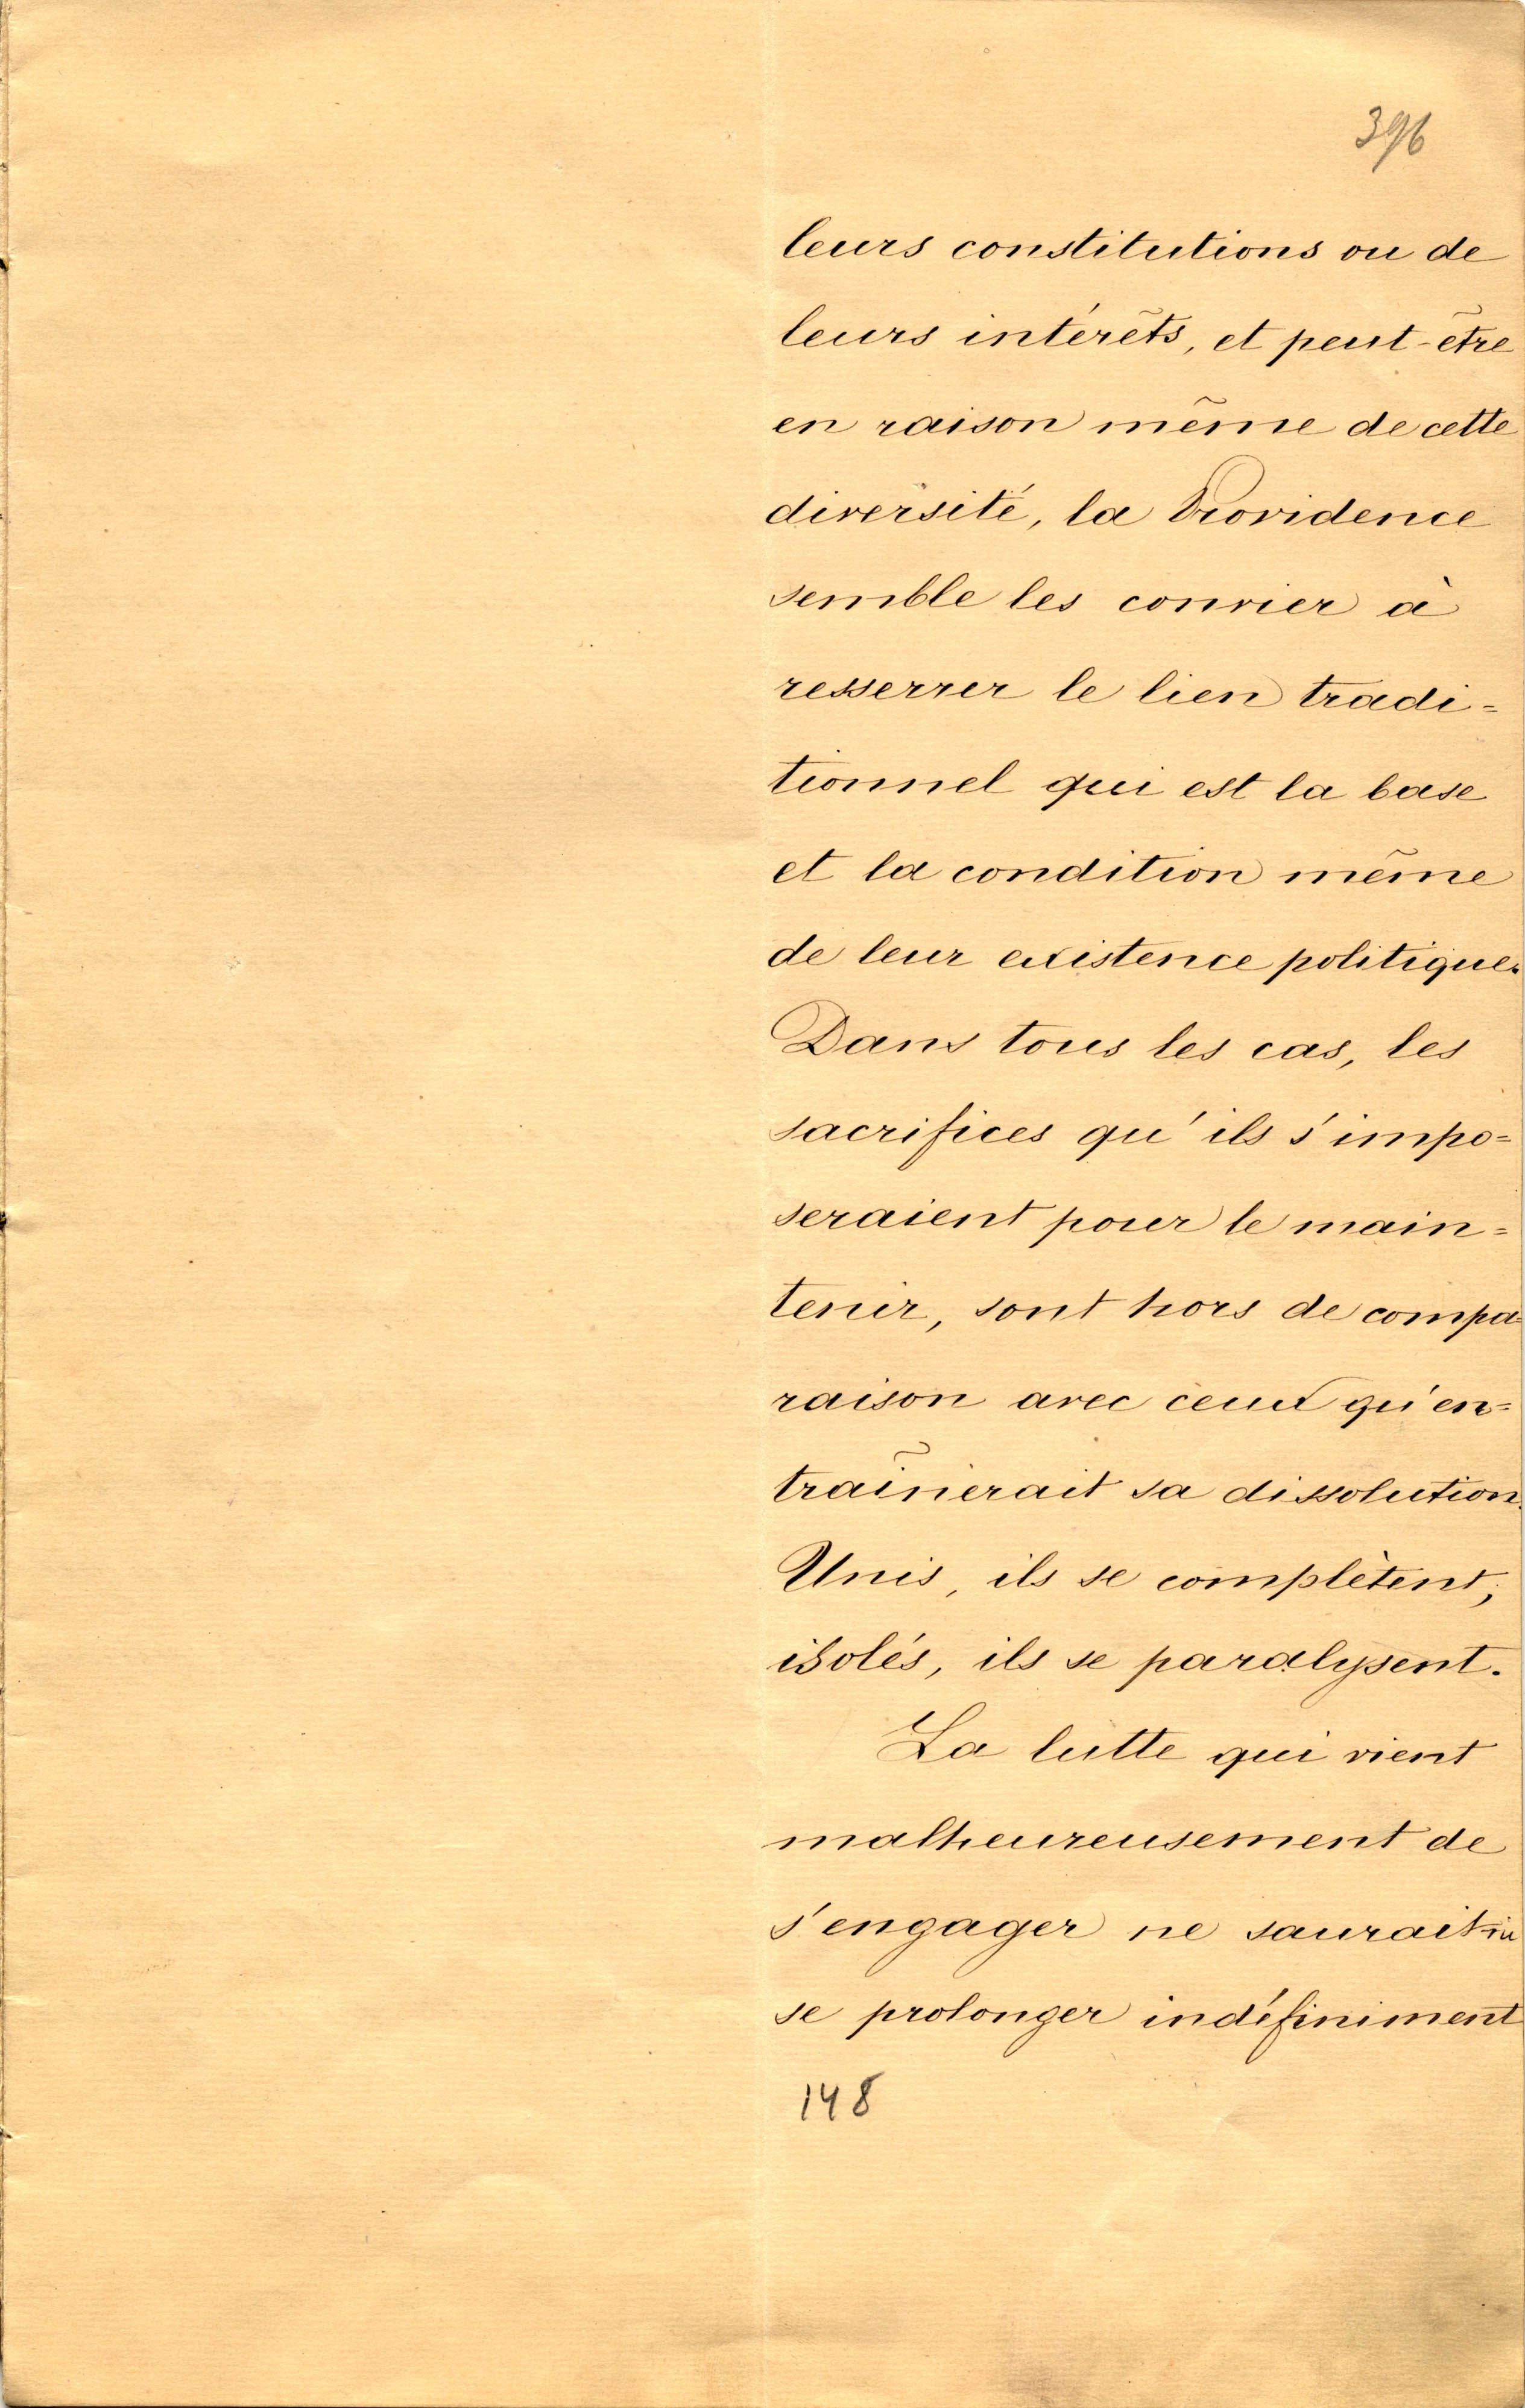 396
leurs constitutions ou de
leurs intérêts, et peut-être
en raison même de cette
diversité, la Providence
semble les convier à
resserrer le lien tradi=
tionnel qui est la base
et la condition même
de leur existence politique.
Dans tous les cas, les
sacrifices qu'ils s'impo=
seraient pour le main=
tenir, sont hors de compa=
raison avec ceux qu'en=
traînerait sa dissolution.
Unis, ils se complètent;
isolés, ils se paralysent.
La lutte qui vient
malheureusement de
s'engager ne saurait
se prolonger indéfiniment
148